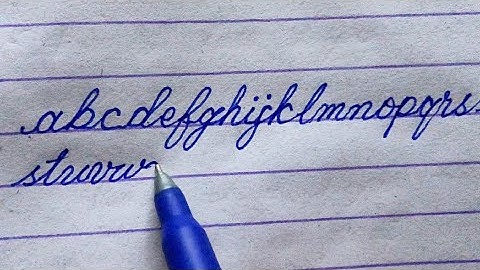 abcdefghijklmnopqrs
stuvw